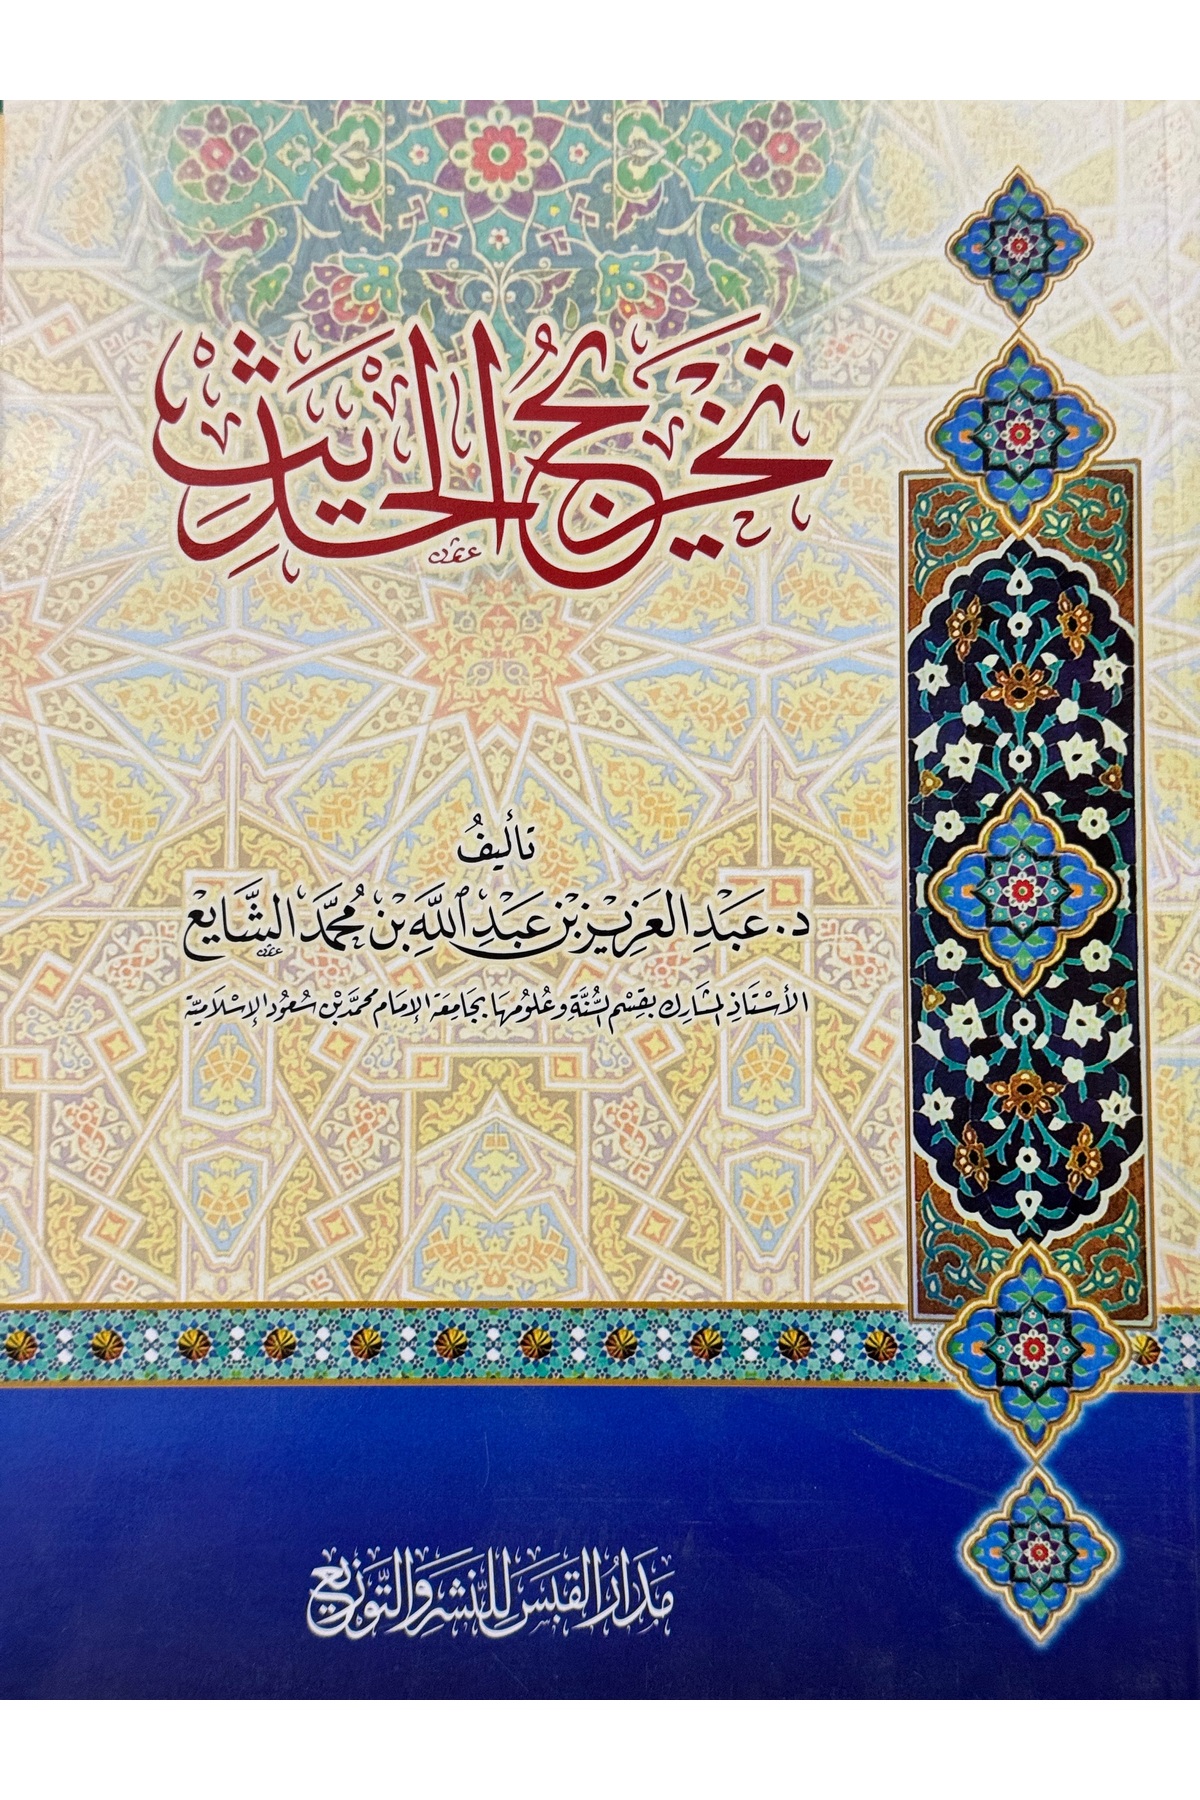 تخريج الحديث
تأليفُ
د. عَبْدِ العَزِيْزِ بْنِ عَبْدِ اللَّهِ بْنِ مُحَمَّد الشَّايِع
الأسْتَاذِ المشَارِك بقِسْم السُّنَّةِ وعُلُومُهَا بجَامِعَة الإمَام محمَّد بْن سُعُود الإسْلَاميَّة
مَدَارُ القَبَسِ لِلنَّشْرِ وَالتَّوزِيع